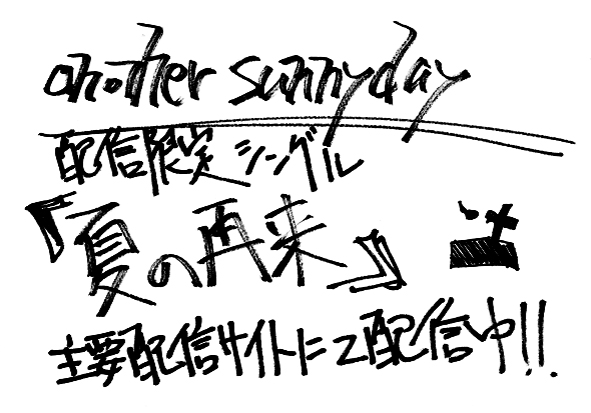 another sunnyday
配信限定シングル
『夏の再来』
主要配信サイトにて配信中!!